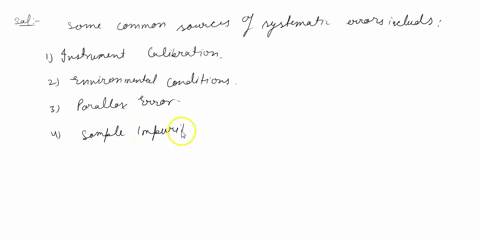 Sol:- Some common sources of systematic errors includs:
1) Instrument Calibration.
2) Environmental Conditions.
3) Parallax Error.
4) Sample Impurit